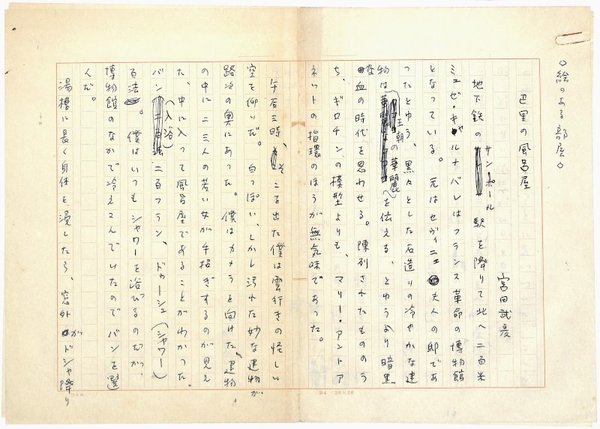 ◇絵のある部屋◇
巴里の風呂屋
宮田武彦
地下鉄のサンポール駅を降りて北へ二百米
ミュゼ・カルナバレはフランス革命の博物館
となっている。元はセヴィニエ夫人の邸であ
ったとゆう、黒々とした石造りの冷やかな建
物は王朝の華麗を伝える、とゆうより暗黒
血の時代を思わせる。陳列されたもののう
ち、ギロチンの模型よりも、マリー・アントア
ネットの指環のほうが無気味であった。
午后三時、そこを出た僕は雲行きの怪しい
空を仰いだ。白っぽい、しかし汚れた妙な建物が
路次の奥にあった。僕はカメラを向けた。建物
の中に二三人の若い女が手招ぎするのが見え
た、中に入って風呂屋であることがわかった。
バン(入浴)二百フラン、ドゥーシュ(シャワー)
る法。僕はいつもシャワーを浴びるのだが、
博物館のなかで冷えこんでいたのでバンを選
んだ。
湯槽に長く身体を浸したら、窓外がドシャ降り